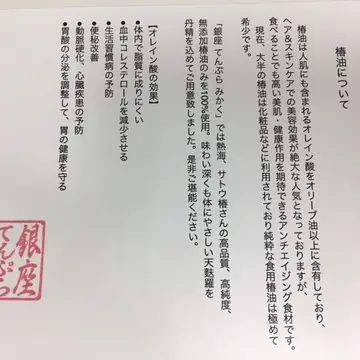 椿油について
椿油は人肌にも含まれるオレイン酸をオリーブ油以上に含有しており、
ヘア&スキンケアでの美容効果が絶大な人気となっておりますが、
食べることでも高い美肌・健康作用を期待できるアンチエイジング食材です。
現在、大半の椿油は化粧品などに利用されており純粋な食用椿油は極めて
希少です。
「銀座 てんぷら みかく」では熱海、サトウ椿さんの高品質、高純度、
無添加椿油のみを100%使用。味わい深くも体にやさしい天麩羅を
丹精を込めてご用意致しました。是非ご堪能ください。
【オレイン酸の効果】
●体内で脂質に成りにくい
●血中コレステロールを減少させる
●生活習慣病の予防
●便秘改善
●動脈硬化、心臓疾患の予防
●胃酸の分泌を調整して、胃の健康を守る
銀座
てんぷら